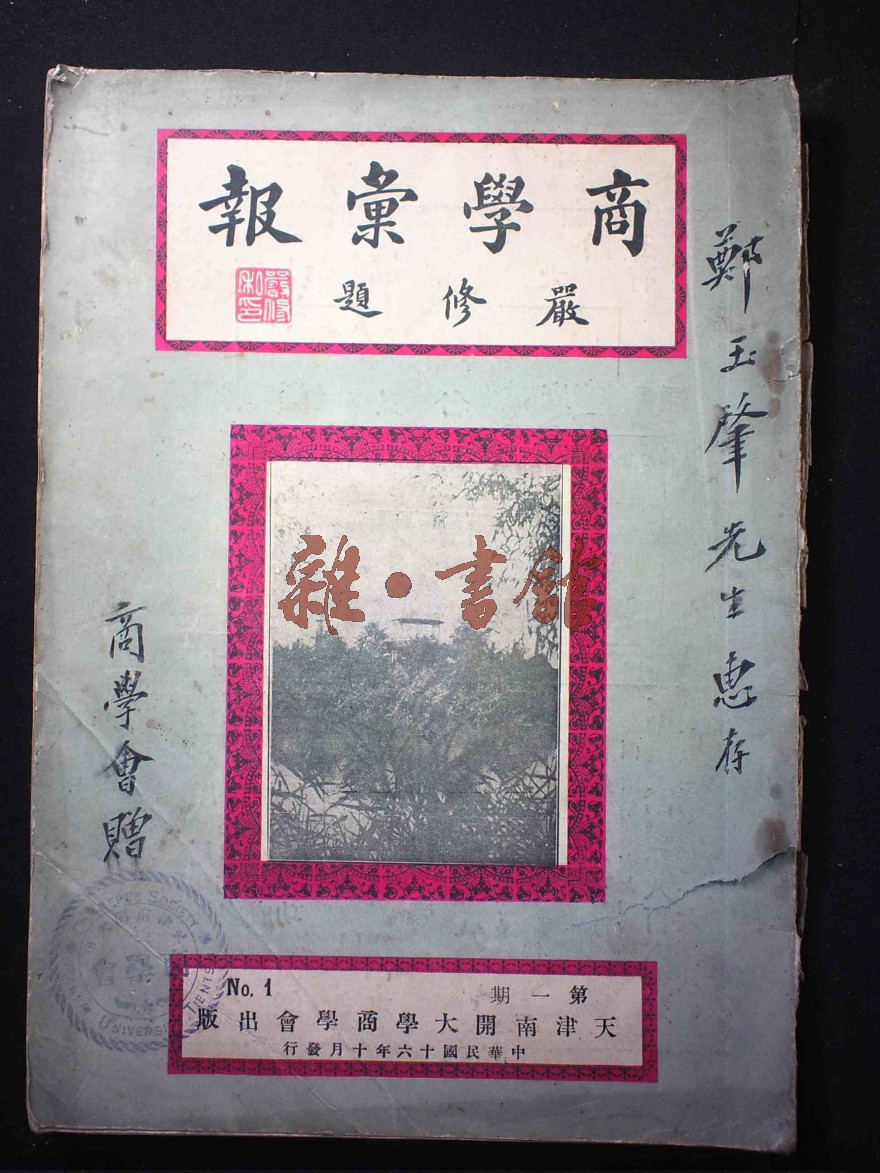 商學彙報
嚴修題
嚴修私印
鄭玉肇先生惠存
雜·書館
商學會贈
COMMERCE SOCIETY
NANKAI UNIVERSITY TIENTSIN
第一期 No. 1
天津南開大學商學會出版
中華民國十六年十月發行